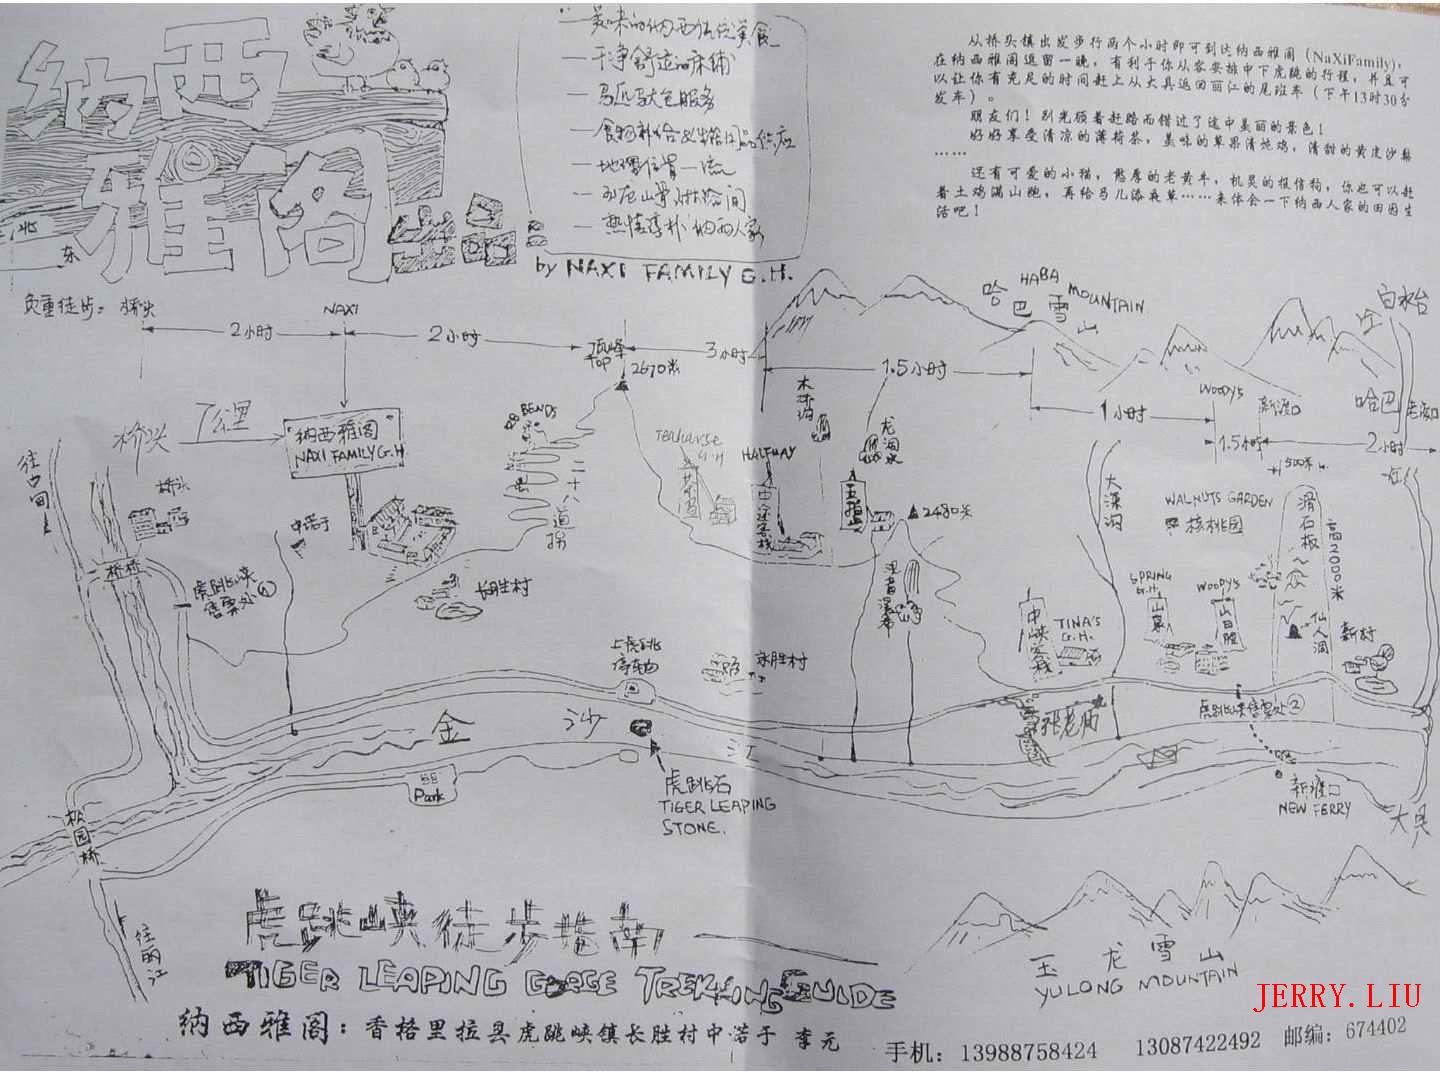 纳西
雅阁
出品:
北
东
一美味的纳西传统美食
一干净舒适的床铺
一马匹驮包服务
一地理位置一流
一热情淳朴纳西人家
by NAXI FAMILY G.H.
从桥头镇出发步行两个小时即可到达纳西雅阁（NaXiFamily),
在纳西雅阁逗留一晚，有利于你从容安排中下虎跳的行程，并且可
以让你有充足的时间赶上从大具返回丽江的尾班车（下午13时30分
发车）。
朋友们！别光顾着赶路而错过了途中美丽的景色！
好好享受清凉的薄荷茶，美味的草果清炖鸡，清甜的黄皮沙梨
……
还有可爱的小猫，憨厚的老黄牛，机灵的报信狗，你也可以赶
着土鸡满山跑，再给马儿添夜草……来体会一下纳西人家的田园生
活吧！
负重徒步: 桥头
2小时
NAXI
2小时
顶峰
TOP
2670米
3小时
1.5小时
哈巴雪山
HABA MOUNTAIN
白水台
哈巴
1小时
WOODY'S
新渡口
1.5小时
500米
2小时
桥头
7公里
纳西雅阁
NAXI FAMILY G.H.
28 BENDS
二十八道拐
Teahorse
G.H
HALFWAY
中途客栈
木本沟
龙洞水
2480米
观音瀑布
大深沟
WALNUTS GARDEN
核桃园
滑石板
高2000米
往中甸
桥头
中诺于
虎跳峡
售票处①
长胜村
上虎跳
停车场
永胜村
中峡客栈
TINA'S
G.H.
SPRING
G.H.
山泉
WOODY'S
山白脸
仙人洞
新村
张老师
虎跳峡售票处②
金 沙 江
Park
虎跳石
TIGER LEAPING
STONE.
新渡口
NEW FERRY
大具
松园桥
往丽江
虎跳峡徒步指南
TIGER LEAPING GORGE TREKKING GUIDE
玉龙雪山
YULONG MOUNTAIN
JERRY.LIU
纳西雅阁：香格里拉县虎跳峡镇长胜村中诺于 李元
手机：13988758424 13087422492 邮编：674402